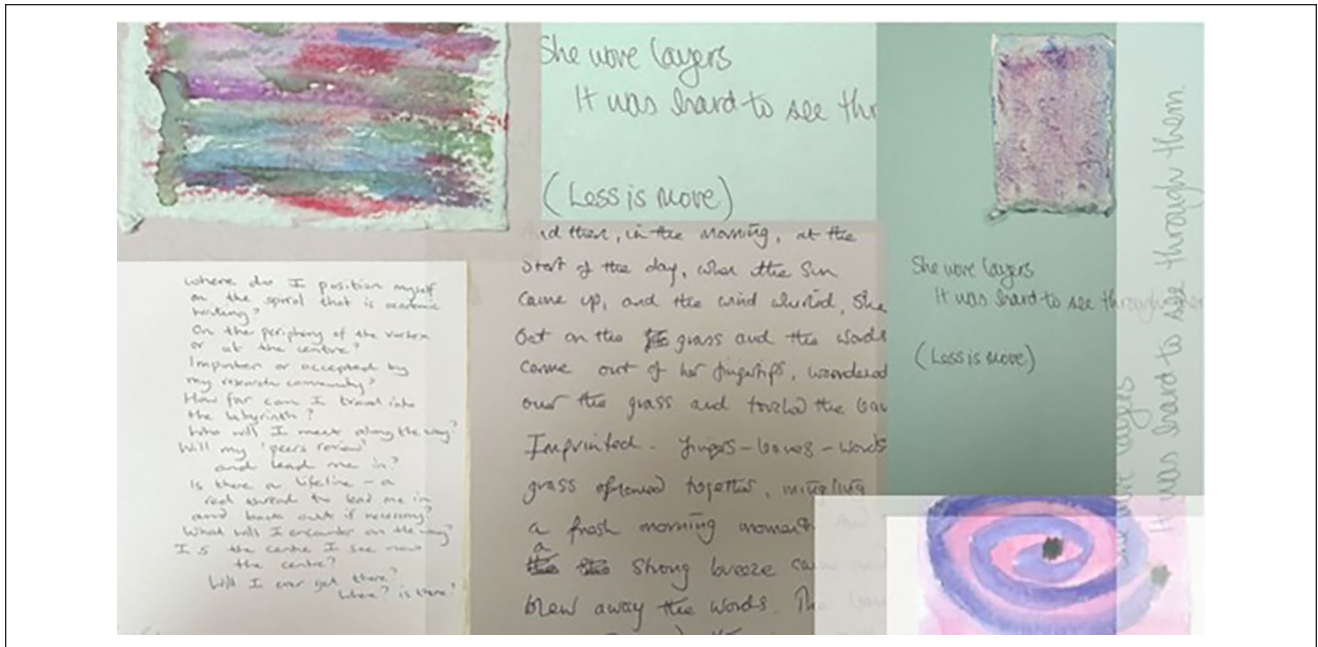 She wore layers
It was hard to see thr
(Less is more)
where do I position myself
on the spiral that is academic
writing?
On the periphery of the vortex
or at the centre?
Imposter or accepted by
my research community?
How far can I travel into
the labyrinth?
Who will I meet along the way?
Will my 'peers review'
and lead me in?
Is there a lifeline - a
red thread to lead me in
and back out if necessary?
What will I encounter on the way?
Is the centre I see now
the centre?
Will I ever get there?
Where? is there?
And then, in the morning, at the
start of the day, when the sun
came up, and the wind whirled, she
sat on the grass and the words
came out of her fingertips, wandered
over the grass and touched the
Imprinted - fingers - leaves - words
grass together, mingling
a fresh morning moment
a strong breeze
blew away the words. The
She wore layers
It was hard to see through them
(Less is more)
She wore layers
It was hard to see through them.